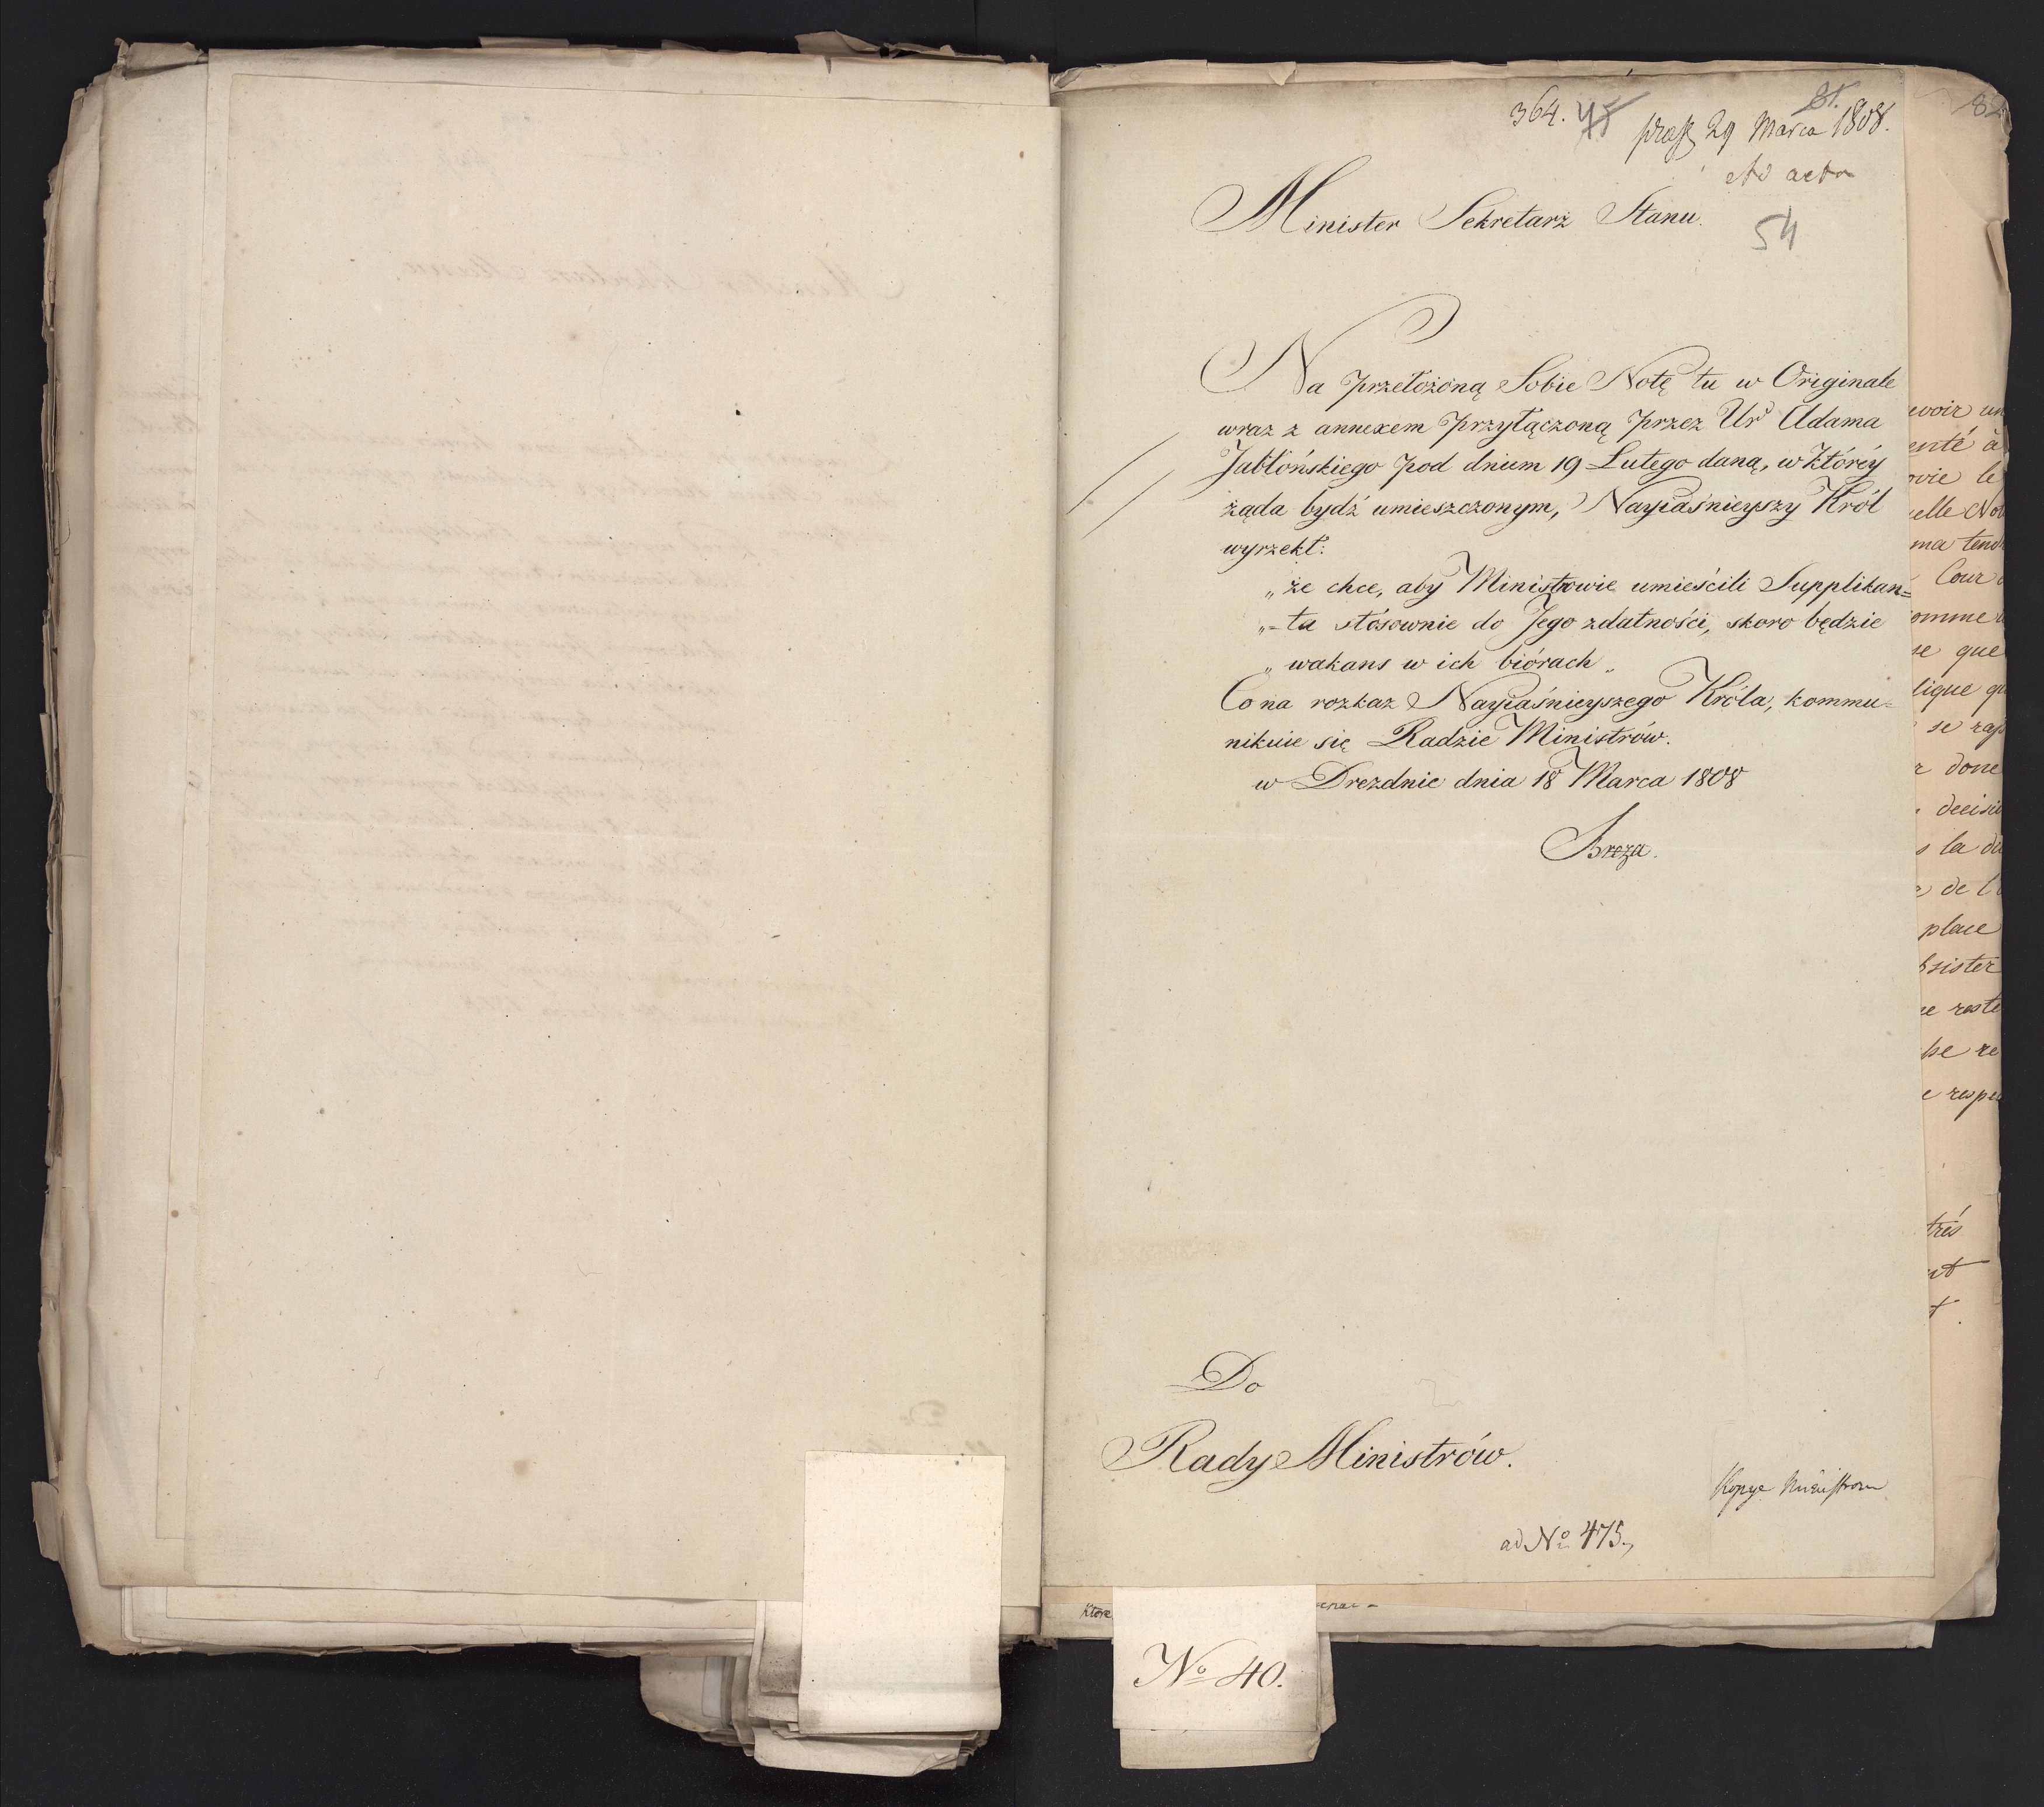 364.
81.
82
praes 29 Marca 1808.
ad acta
Minister Sekretarz Stanu.
54
Na przełożoną Sobie Notę tu w Originale
wraz z annexem przyłączoną przez Ur Adama
Jabłońskiego pod dniem 19 Lutego daną, w którey
żąda bydź umieszczonym, Nayiaśnieyszy Król
wyrzekł:
„ że chce, aby Ministrowie umieścili Supplikan=
„=ta stósownie do Jego zdatności, skoro będzie
„ wakans w ich biórach „
Co na rozkaz Nayiaśnieyszego Króla, kommu=
nikuie się Radzie Ministrów.
w Dreznie dnia 18 Marca 1808
Breza.
Do
Rady Ministrów.
Kopye Ministrom
ad No 475.
No 40.
które
evoir un
enté à
ovie le
elle Not
ma tend
Cour
omme
se que
lique qu
se rap
r done
decisi
s la
de l
place
bsister
ne reste
se re
e respe
très